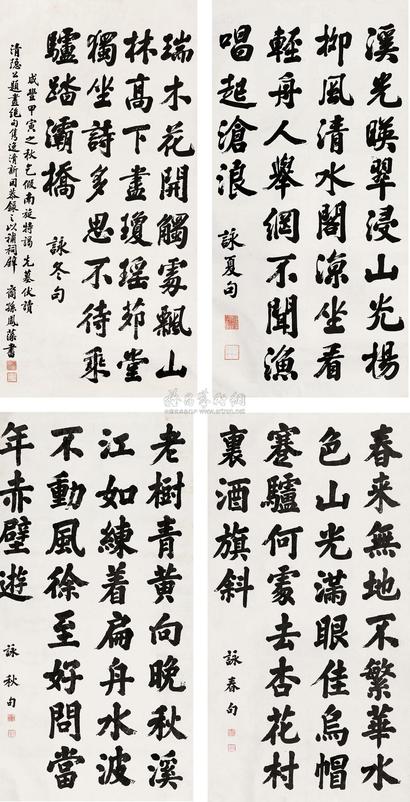 溪光暎翠浸山光楊
柳風清水閣凉坐看
輕舟人舉網不聞漁
唱起滄浪
詠夏句
瑞木花開觸處飄山
林高下盡瓊瑤茆堂
獨坐詩多思不待乘
驢踏灞橋
詠冬句
咸豐甲寅之秋乞假南旋特謁先墓伏讀
清隱公題畫絕句雋逸清新因恭錄之以補祠壁 裔孫鳳藻書
春來無地不繁華水
色山光滿眼佳烏帽
蹇驢何處去杏花村
裏酒旗斜
詠春句
老樹青黃向晚秋溪
江如練着扁舟水波
不動風徐至好問當
年赤壁遊
詠秋句